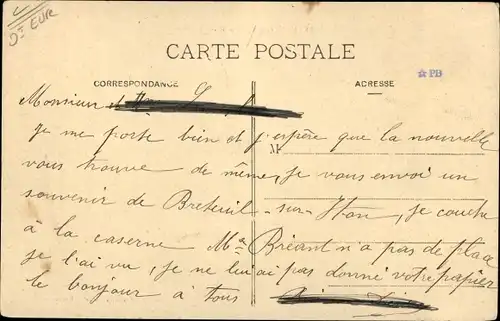 Dᵗ EUR
CARTE POSTALE
☆ PB
CORRESPONDANCE
ADRESSE
M
Monsieur
Je me porte bien et j'espère que la nouvelle
vous trouve de même, je vous envoi un
souvenir de Breteuil-sur-Iton, je couche
à la caserne Mᵐᵉ Bréant n'a pas de place
je l'ai vu, je ne lui ai pas donné votre papier
le bonjour à tous